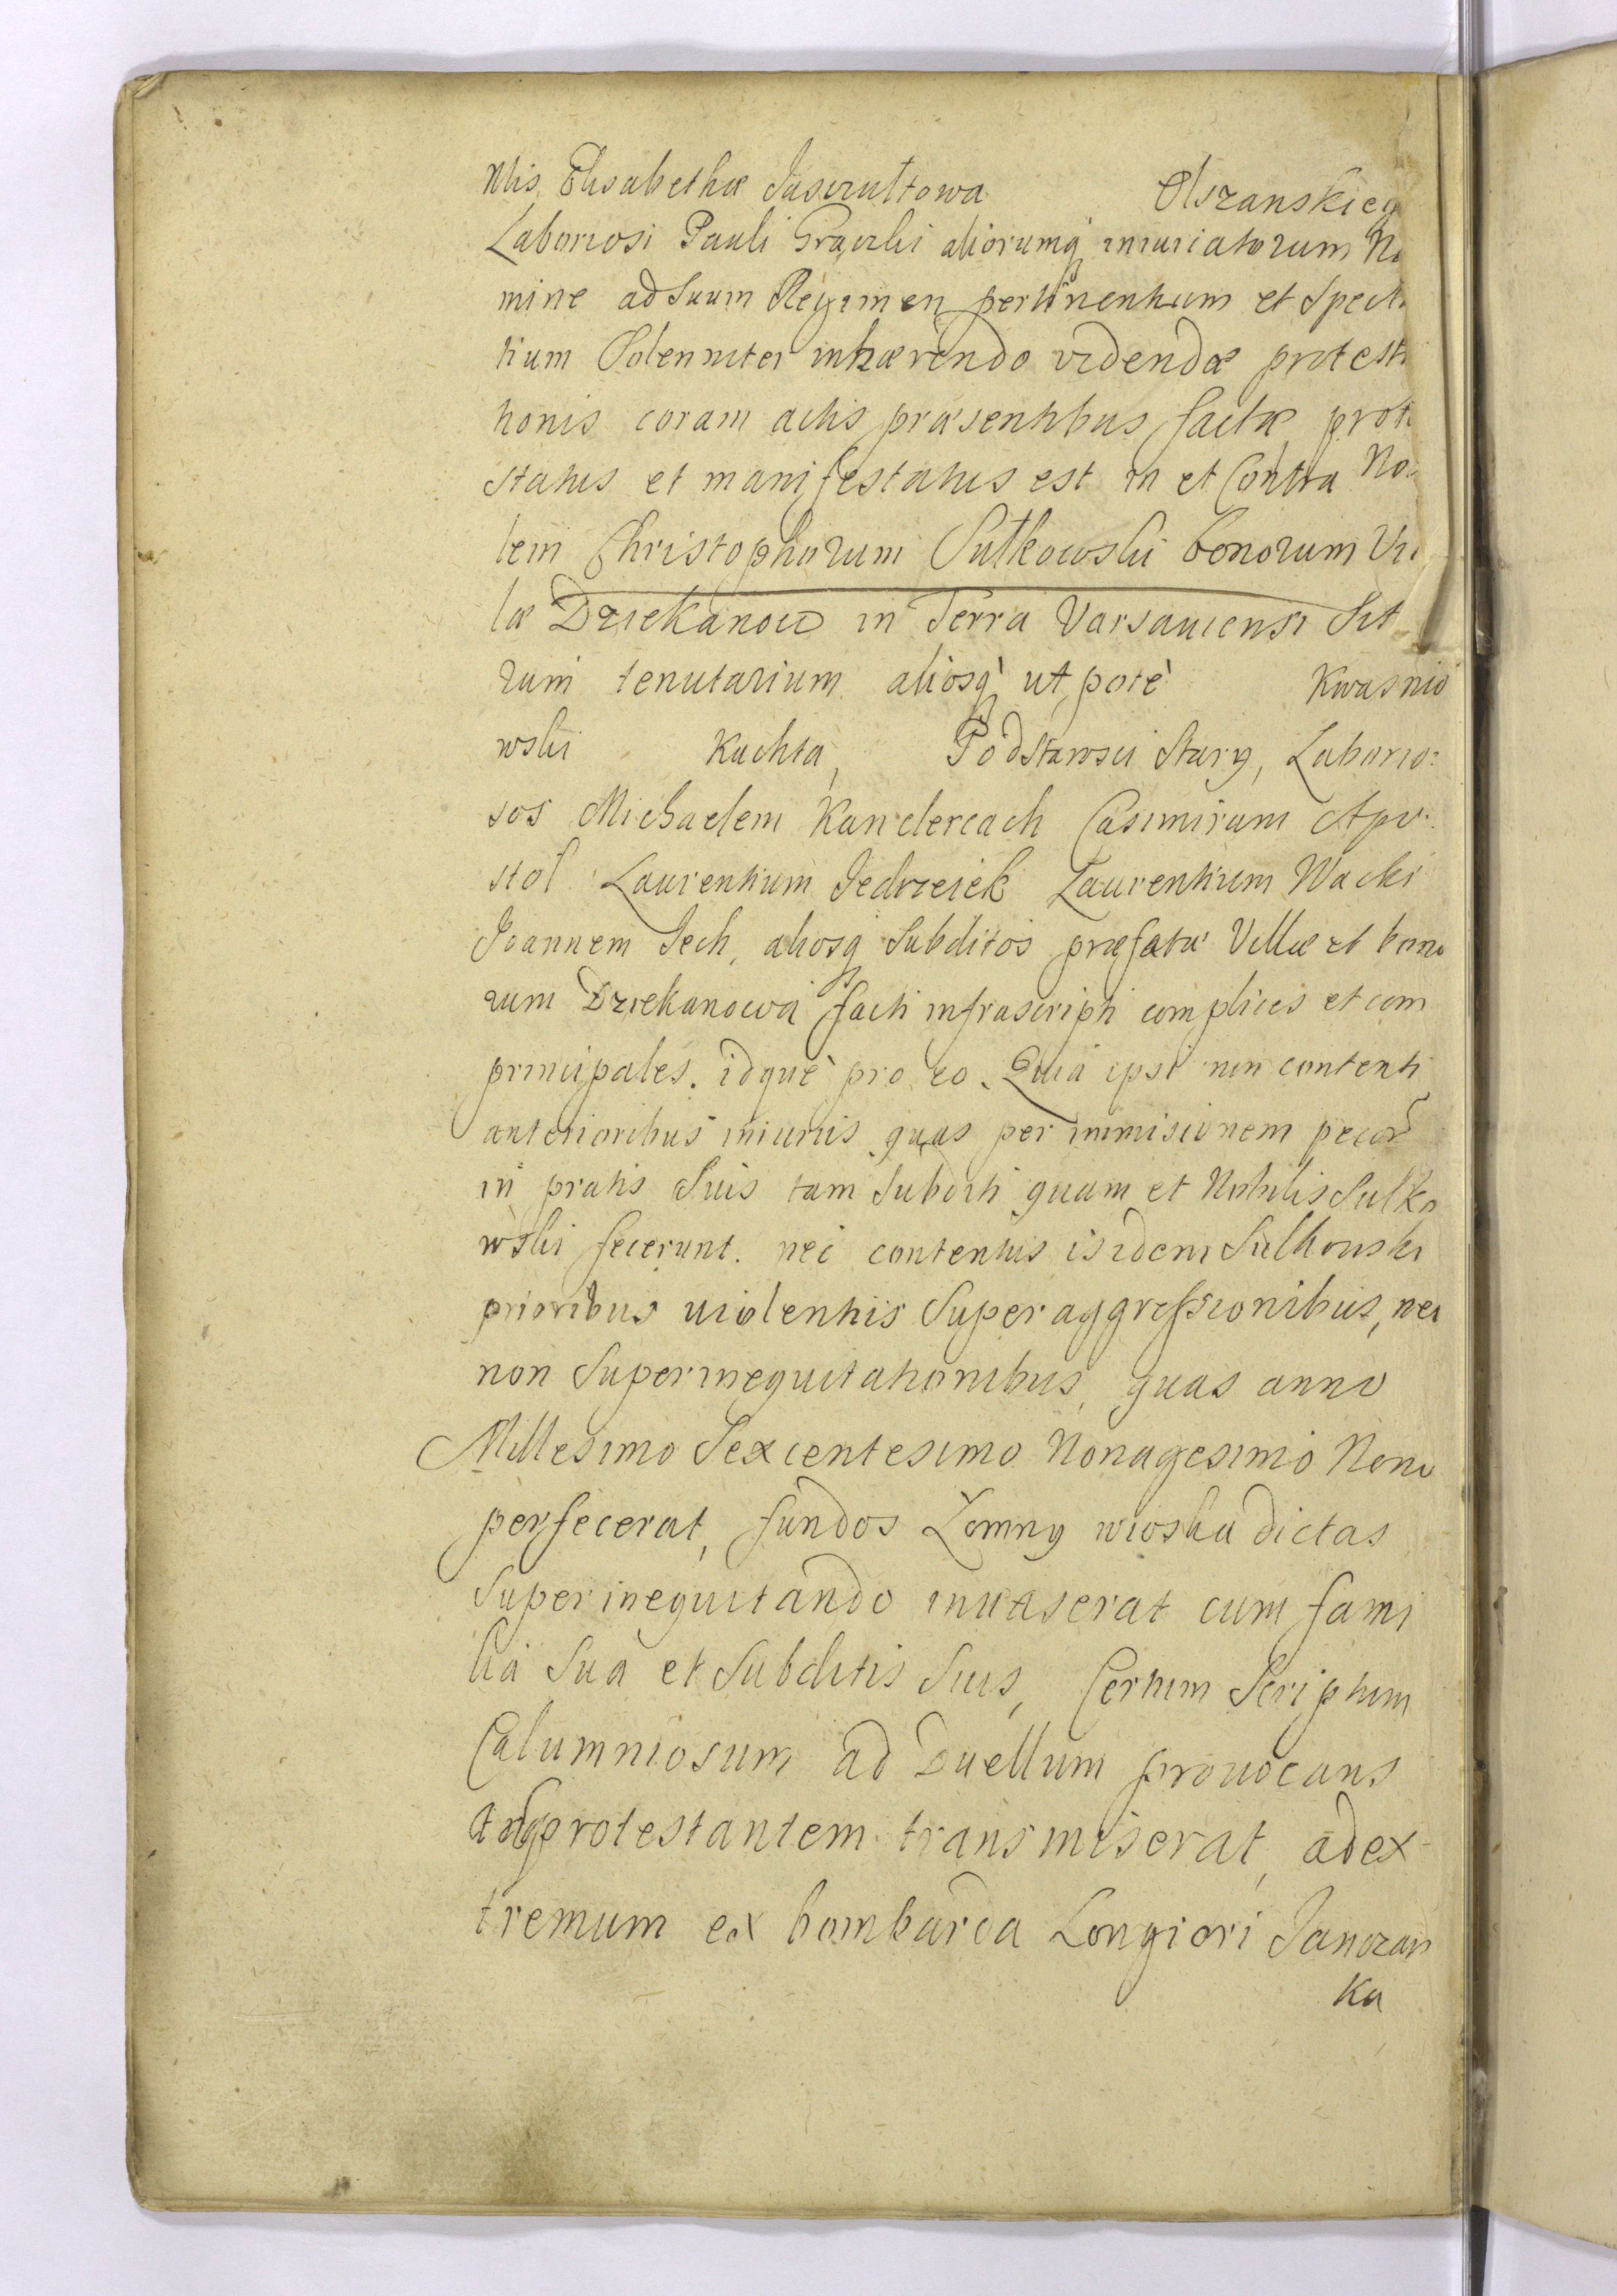 Nlis Elisabethæ Olszanskieg
Laboriosi Pauli aliorumq iniuriatorum No
mine ad suum Regimen pertinentium et Specta
tium Solenniter inhærendo videndæ protesta
tionis coram actis præsentibus factæ prote
status et manifestatus est in et Contra Nob
lem Christophorum Sułkowski bonorum Vil
læ Dziekanow in Terra Varsauiensi Sit
rum tenutarium aliosq ut potè Kwasnio
wski Kuchta, Podstarosci Stary, Laborio:
sos Michaelem Kanclercach Casimirum Apo:
stoł Laurentium Jedrzeiek Laurentium Wacki
Joannem Sech, aliosq Subditos præfatæ Villæ et bono
rum Dziekanowa facti infrascripti complices et com
principales. idquè pro eo. Quia ipsi non contenti
anterioribus iniuriis quas per immisionem pecor
in pratis Suis tam Subditi quam et Nobilis Sulko
wski fecerunt. nec contentus isidem Sulkowski
prioribus uiolentiis Superaggressionibus, nec
non Superinequitationibus, quas anno
Millesimo Sexcentesimo Nonagesimo Nono
perfecerat, fundos Łomny wioska dictas
Superinequitando inuaserat cum fami
lia Sua et Subditis Suis, Certum Scriptum
Calumniosum ad Duellum prouocans
protestantem transmiserat, ad ex
tremum ex bombarda Longiori Janczar
ka